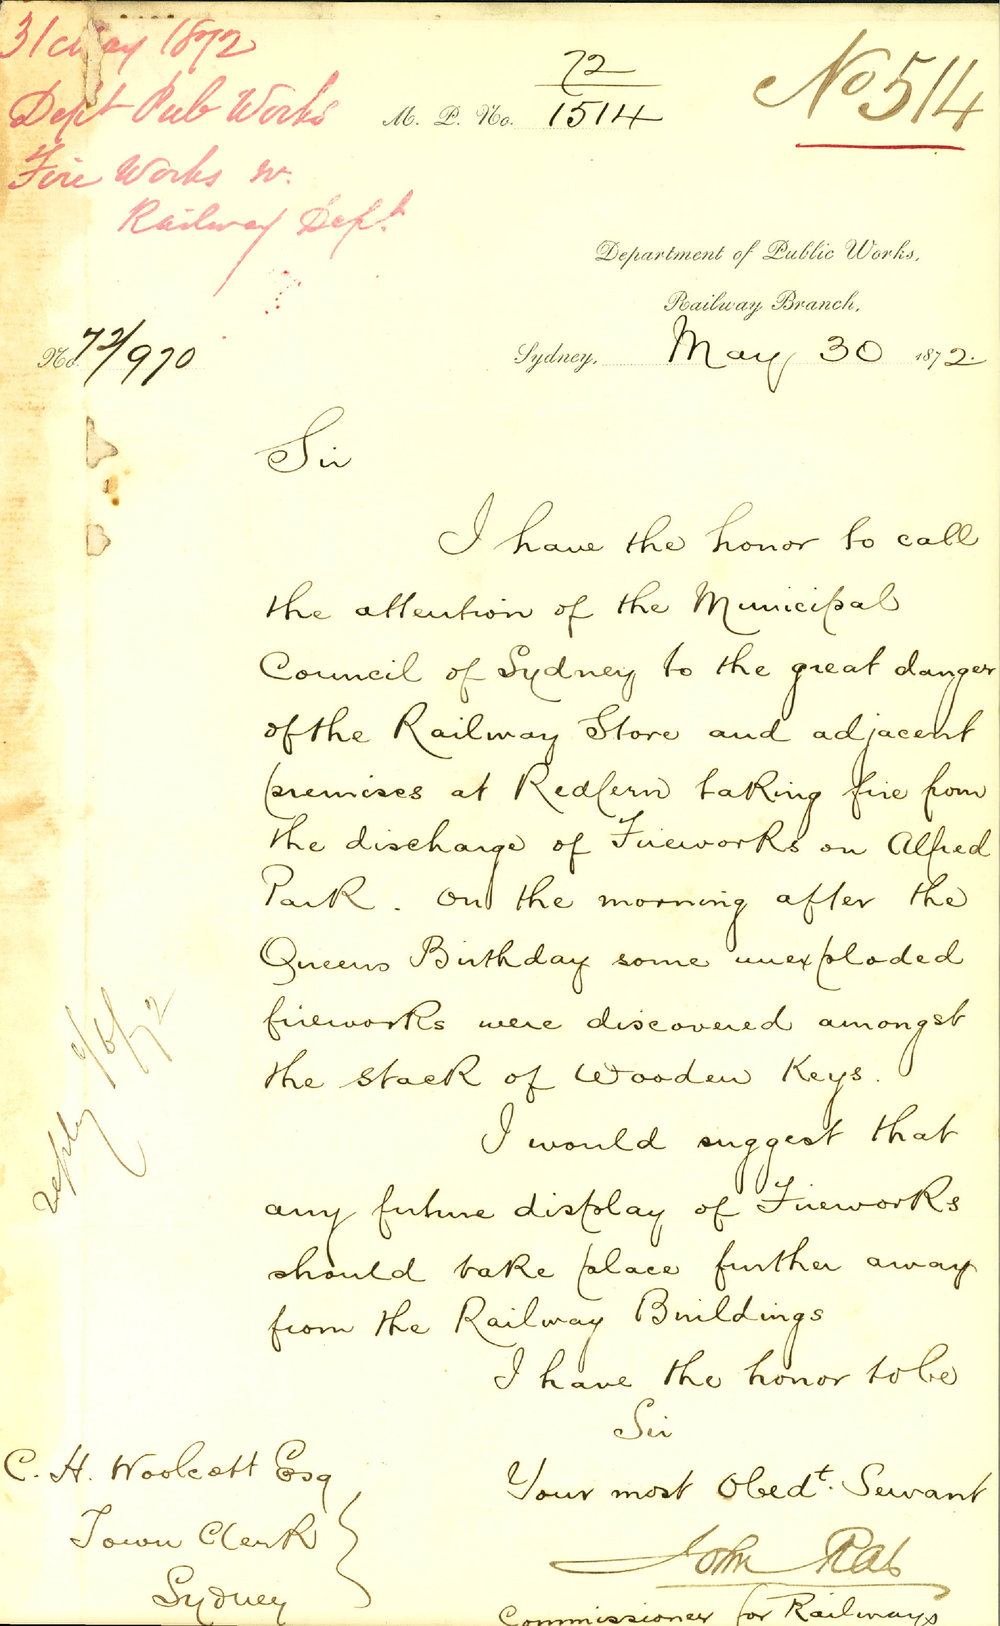 31 May 1872
Dept Pub Works
Fire Works nr.
Railway Dept.
No 514
72
M. P. No. 1514
Department of Public Works,
Railway Branch,
No. 72/970
Sydney, May 30 1872.
Sir
I have the honor to call
the attention of the Municipal
Council of Sydney to the great danger
of the Railway Store and adjacent
premises at Redfern taking fire from
the discharge of Fireworks on Alfred
Park. On the morning after the
Queens Birthday some unexploded
fireworks were discovered amongst
the stack of Wooden Keys.
I would suggest that
any future display of Fireworks
should take place further away
from the Railway Buildings
I have the honor to be
Sir
Your most Obedt. Servant
John Rae
Commissioner for Railways
C. H. Woolcott Esq
Town Clerk
Sydney
reply /6/72